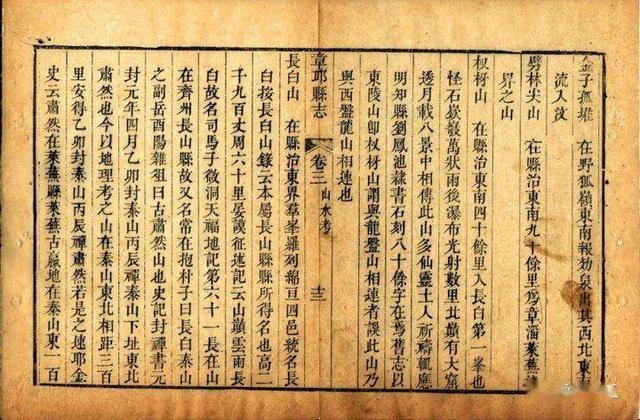 金子孤堆 在野狐嶺東南報効泉出其西北東
流入汶
劈林尖山 在縣治東南九十餘里爲章淄萊蕪
界之山
杈枒山 在縣治東南四十餘里入長白第一峯也
怪石嶔𡾰萬狀雨後瀑布光射數里北巔有大窟
透月載八景中相傳此山多仙靈土人祈禱輒應
明知縣劉鳳池隸書石刻八十餘字在焉舊志以
東陵山卽杈枒山謂與龍盤山相連者誤此山乃
與西盤龍山相連也
章邱縣志 卷三 山水考 十三
長白山 在縣治東界羣峯羅列綿亘四邑統名長
白按長白山錄云本屬長山縣縣所得名也高二
千九百丈周六十里晏謨征途記云山巔雲雨長
白故名司馬子微洞天福地記第六十一長在山
在齊州長山縣故又名常在抱朴子曰長白泰山
之副岳酉陽雜俎曰古肅然山也史記封禪書元
封元年四月乙卯封泰山丙辰禪泰山下址東北
肅然也今以地理考之山在泰山東北相距三百
里安得乙卯封泰山丙辰禪肅然若是之速耶金
史云肅然在萊蕪縣萊蕪古嬴地在泰山東一百